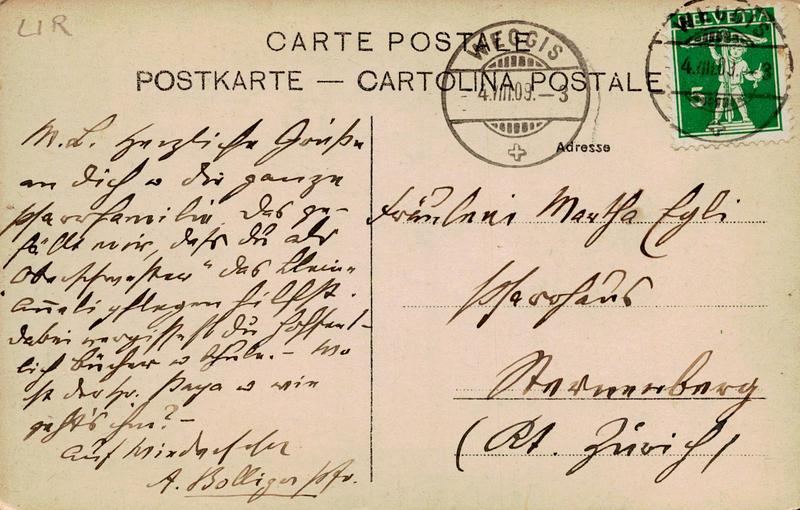 LIR
CARTE POSTALE
POSTKARTE — CARTOLINA POSTALE
WEGGIS
4.VIII.09.–3
HELVETIA
5
WEGGIS
4.VIII.09.–3
Adresse
M. L. Herzliche Grüße
an Dich u die ganze
Pfarrfamilie. Das ge-
fällt mir, daß du als
"Oberschwester" das kleine
Anneli pflegen hilfst.
dabei vergißest du hoffent-
lich Bücher u Schule. – Wo
ist der Hr. Papa u wie
geht's ihm? –
Auf Wiedersehen
A. Bolliger Pfr.
Fräulein Martha Egli
Pfarrhaus
Sternenberg
(Kt. Zürich)